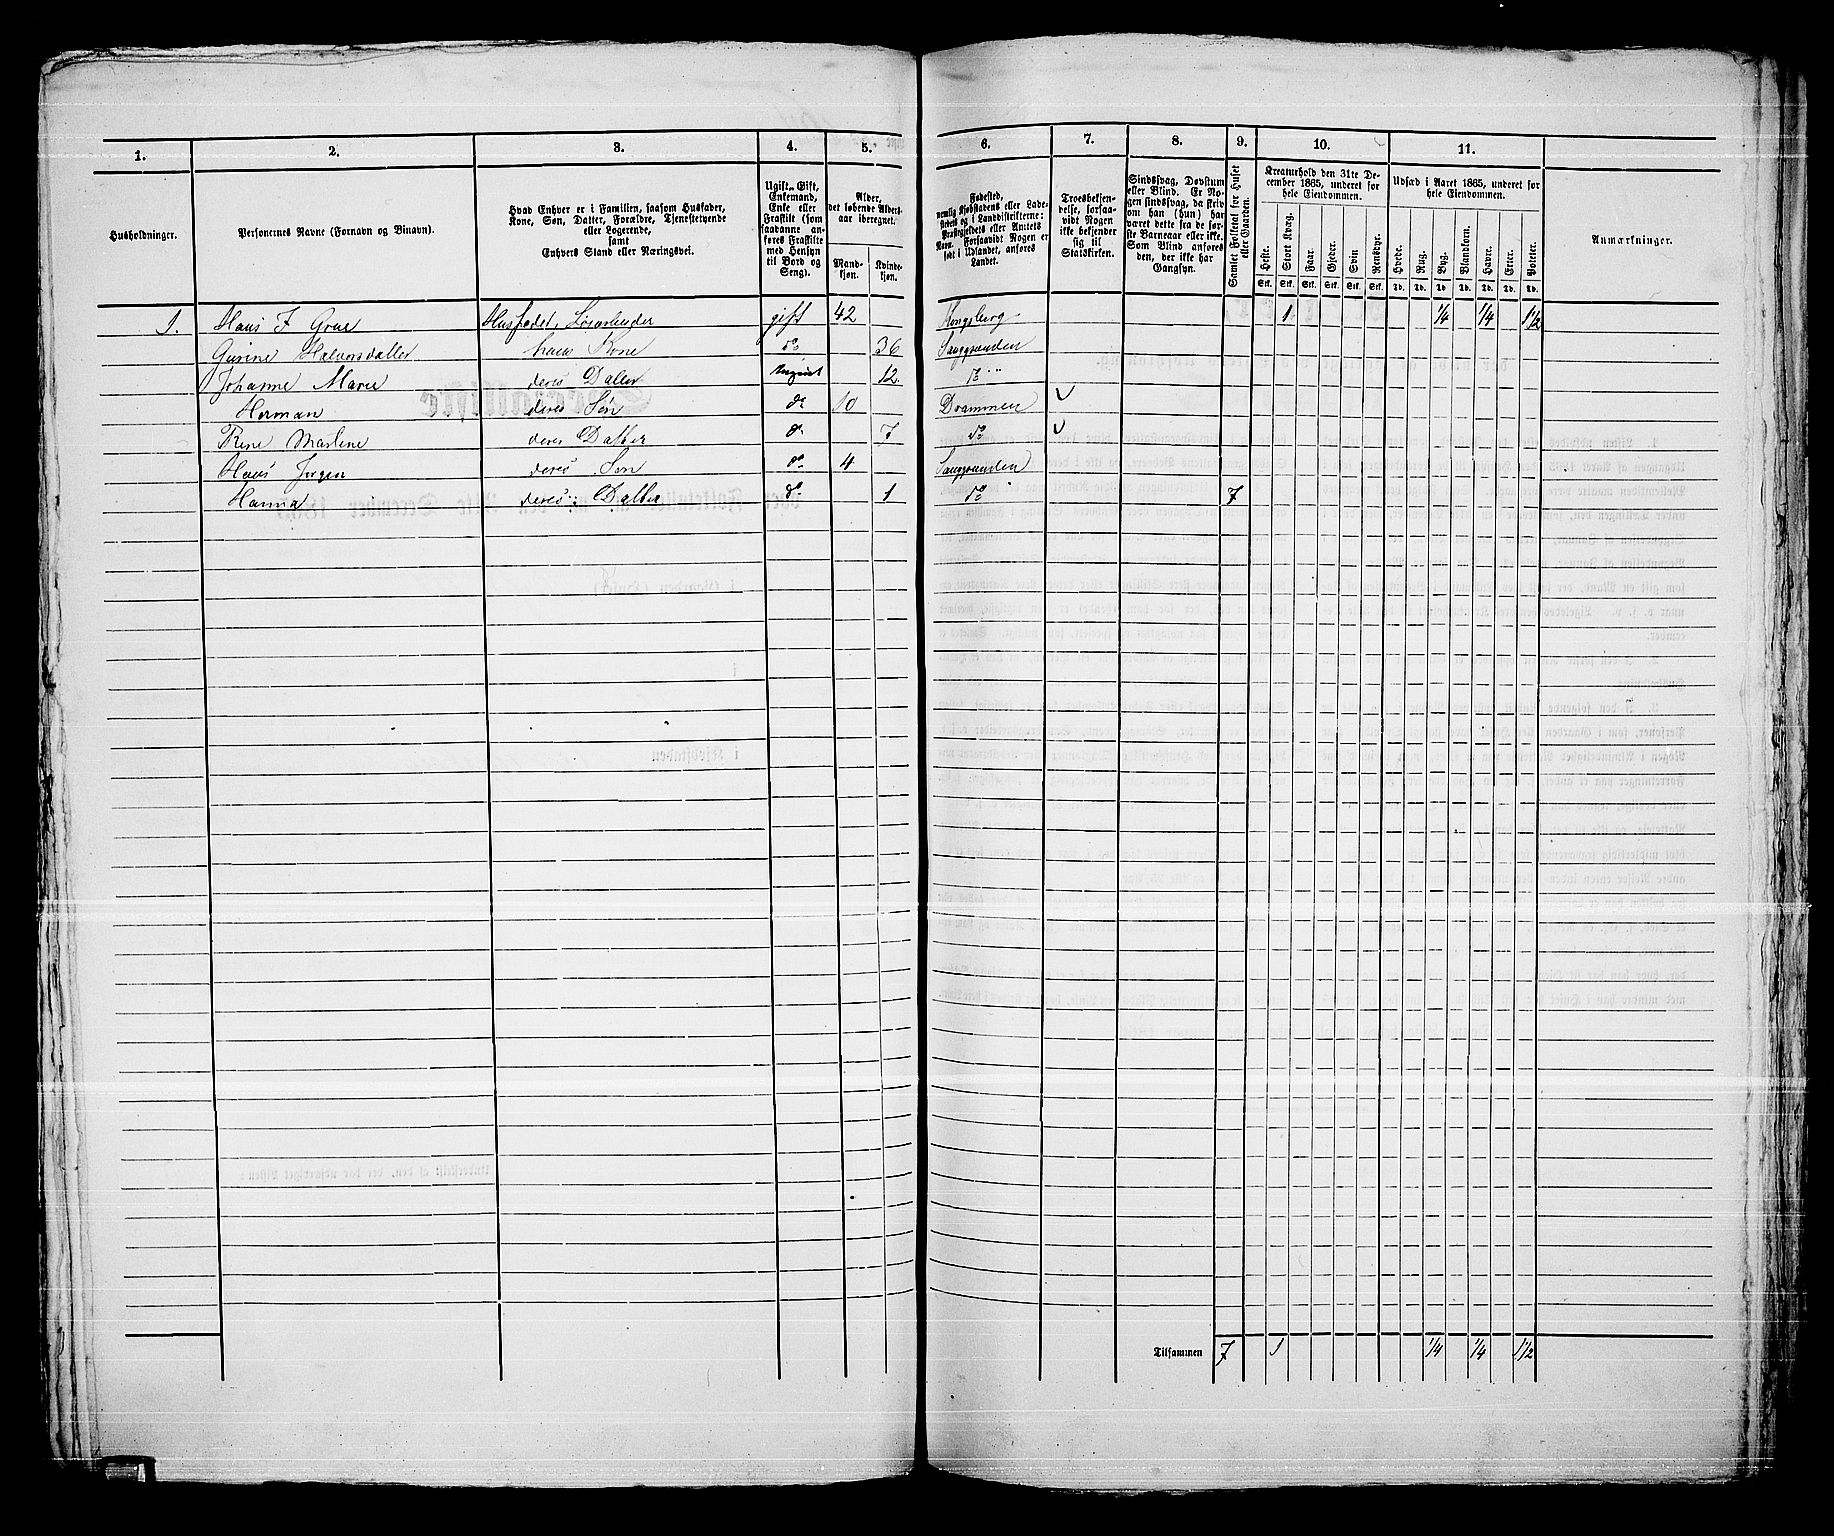 1. 2. 3. 4. 5. 6. 7. 8. 9. 10. 11.
Husholdninger.
Personernes Navne (Fornavn og Binavn).
Hvad Enhver er i Familien, saasom Husfader,
Kone, Søn, Datter, Forældre, Tjenestetyende
eller Logerende,
samt
Enhvers Stand eller Næringsvei.
Ugift, Gift,
Enkemand,
Enke eller
Fraskilt (som
saadanne an-
føres Fraskilte
med Hensyn
til Bord og
Seng).
Alder,
det løbende Alders-
aar iberegnet.
Mand-
kjøn.
Kvinde-
kjøn.
Fødested,
nemlig Kjøbstadens eller Lade-
stedets og i Landdistrikterne:
Præstegjeldets eller Amtets
Navn. Forsaavidt Nogen er
født i Udlandet, anføres
Landet.
Troesbekjen-
delse, forsaa-
vidt Nogen
ikke bekjender
sig til
Statskirken.
Sindssvag, Døvstum
eller Blind. Er No-
gen sindssvag, da skriv
om han (hun) har
været dette fra de før-
ste Barneaar eller ikke.
Som Blind anføres
den, der ikke har
Gangsyn.
Samlet Folketal for Huset
eller Gaarden.
Kreaturhold den 31te De-
cember 1865, underet for
hele Eiendommen.
Heste. Stort Kvæg. Faar Gjeder. Svin Rensdyr.
Stk. Stk. Stk. Stk. Stk. Stk.
Udsæd i Aaret 1865, underet for
hele Eiendommen.
Hvede. Rug. Byg. Blandkorn. Havre. Erter. Poteter.
Td. Td. Td. Td. Td. Td. Td.
Anmærkninger.
1. Hans F Grue Husfader, Løsarbeider gift 42 Kongsberg 1 1/4 1/4 1 1/2
Gurine Halvorsdatter hans Kone do 36
Johanne Marie deres Dater ugivt 12. do
Herman deres Søn do 10 Drammen
Rine Martene deres Datter do 7 do
Hans Jørgen deres Søn do 4
Hanna deres Datter do 1 do 7
Tilsammen 7 1 1/4 1/4 1 1/2